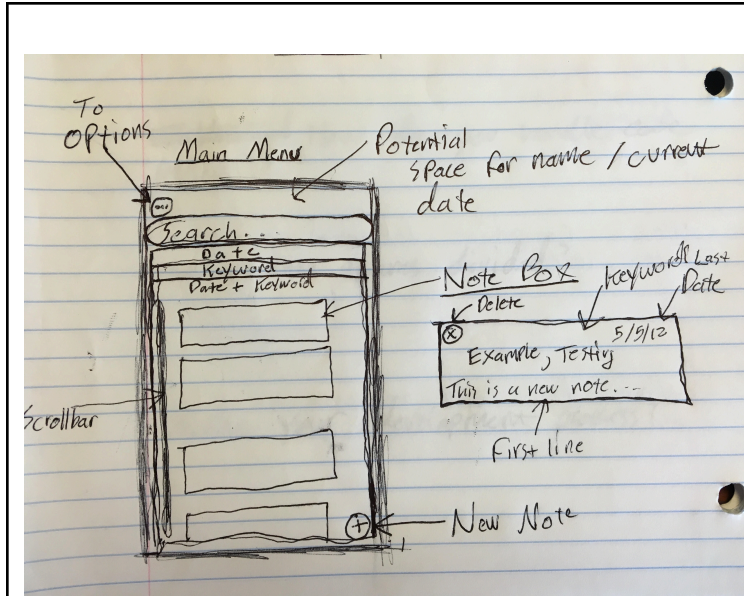 To
Options
Main Menu
Potential
Space for name / current
date
Search...
Date
Keyword
Date + Keyword
Note Box
Delete
Keywords
Last
Date
X
5/5/12
Example, Testing
This is a new note....
First line
Scrollbar
+
New Note